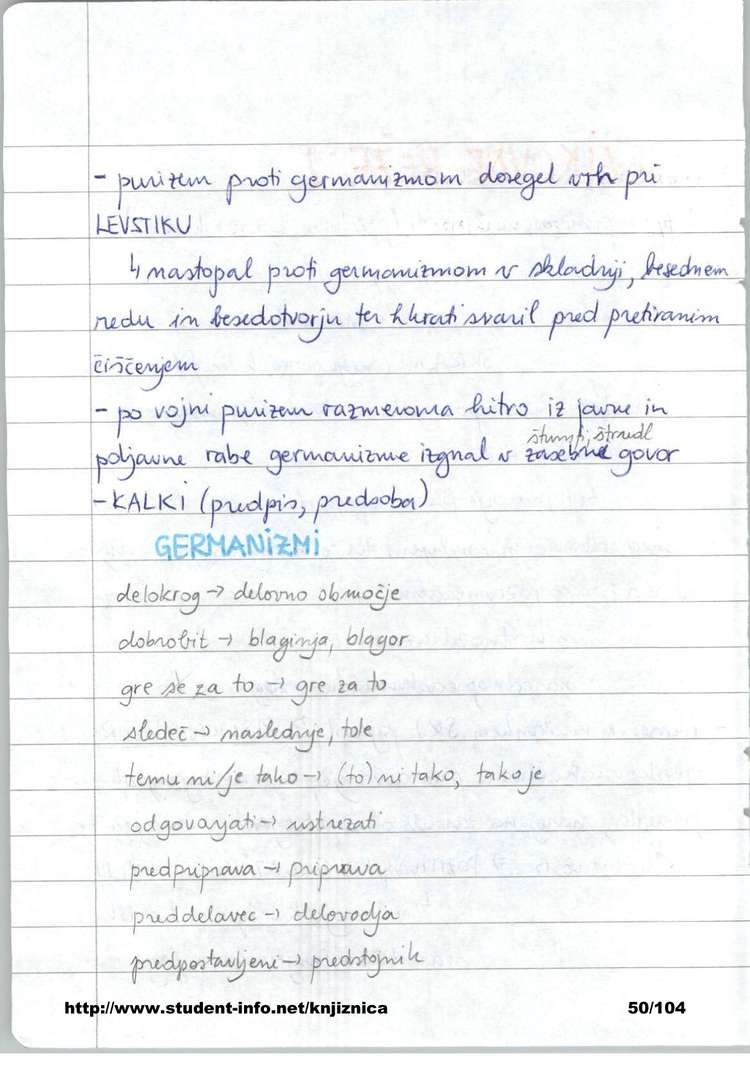 - purizem proti germanizmom dosegel vrh pri
LEVSTIKU
↳ nastopal proti germanizmom v skladnji, besednem
redu in besedotvorju ter hkrati svaril pred pretiranim
čiščenjem
- po vojni purizem razmeroma hitro iz javne in
štumfi, štrudl
poljavne rabe germanizme izgnal v zasebne govor
- KALKI (predpis, predsoba)
GERMANIZMI
delokrog → delovno območje
dobrobit → blaginja, blagor
gre se za to → gre za to
sledeč → naslednje, tole
temu ni/je tako → (to) ni tako, tako je
odgovarjati → ustrezati
predpriprava → priprava
preddelavec → delovodja
predpostavljeni → predstojnik
http://www.student-info.net/knjiznica 50/104